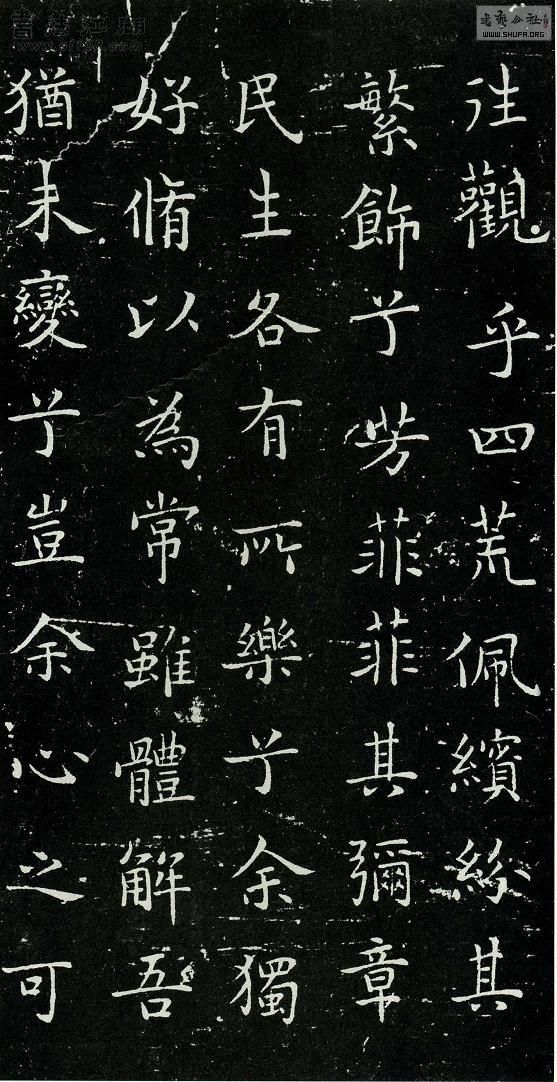 往觀乎四荒佩繽紛其
繁飾兮芳菲菲其彌章
民生各有所樂兮余獨
好脩以為常雖體解吾
猶未變兮豈余心之可
WWW.SHUFA.ORG